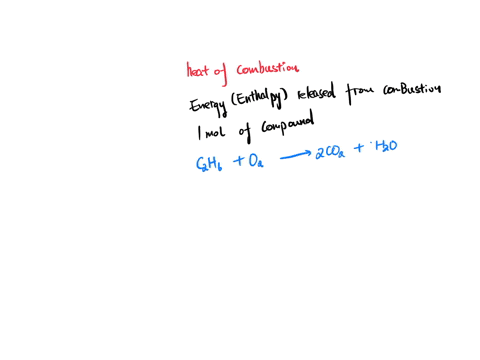 heat of combustion
Energy (Enthalpy) released from combustion
1 mol of compound
C₂H₆ + O₂ ⟶ 2CO₂ + H₂O